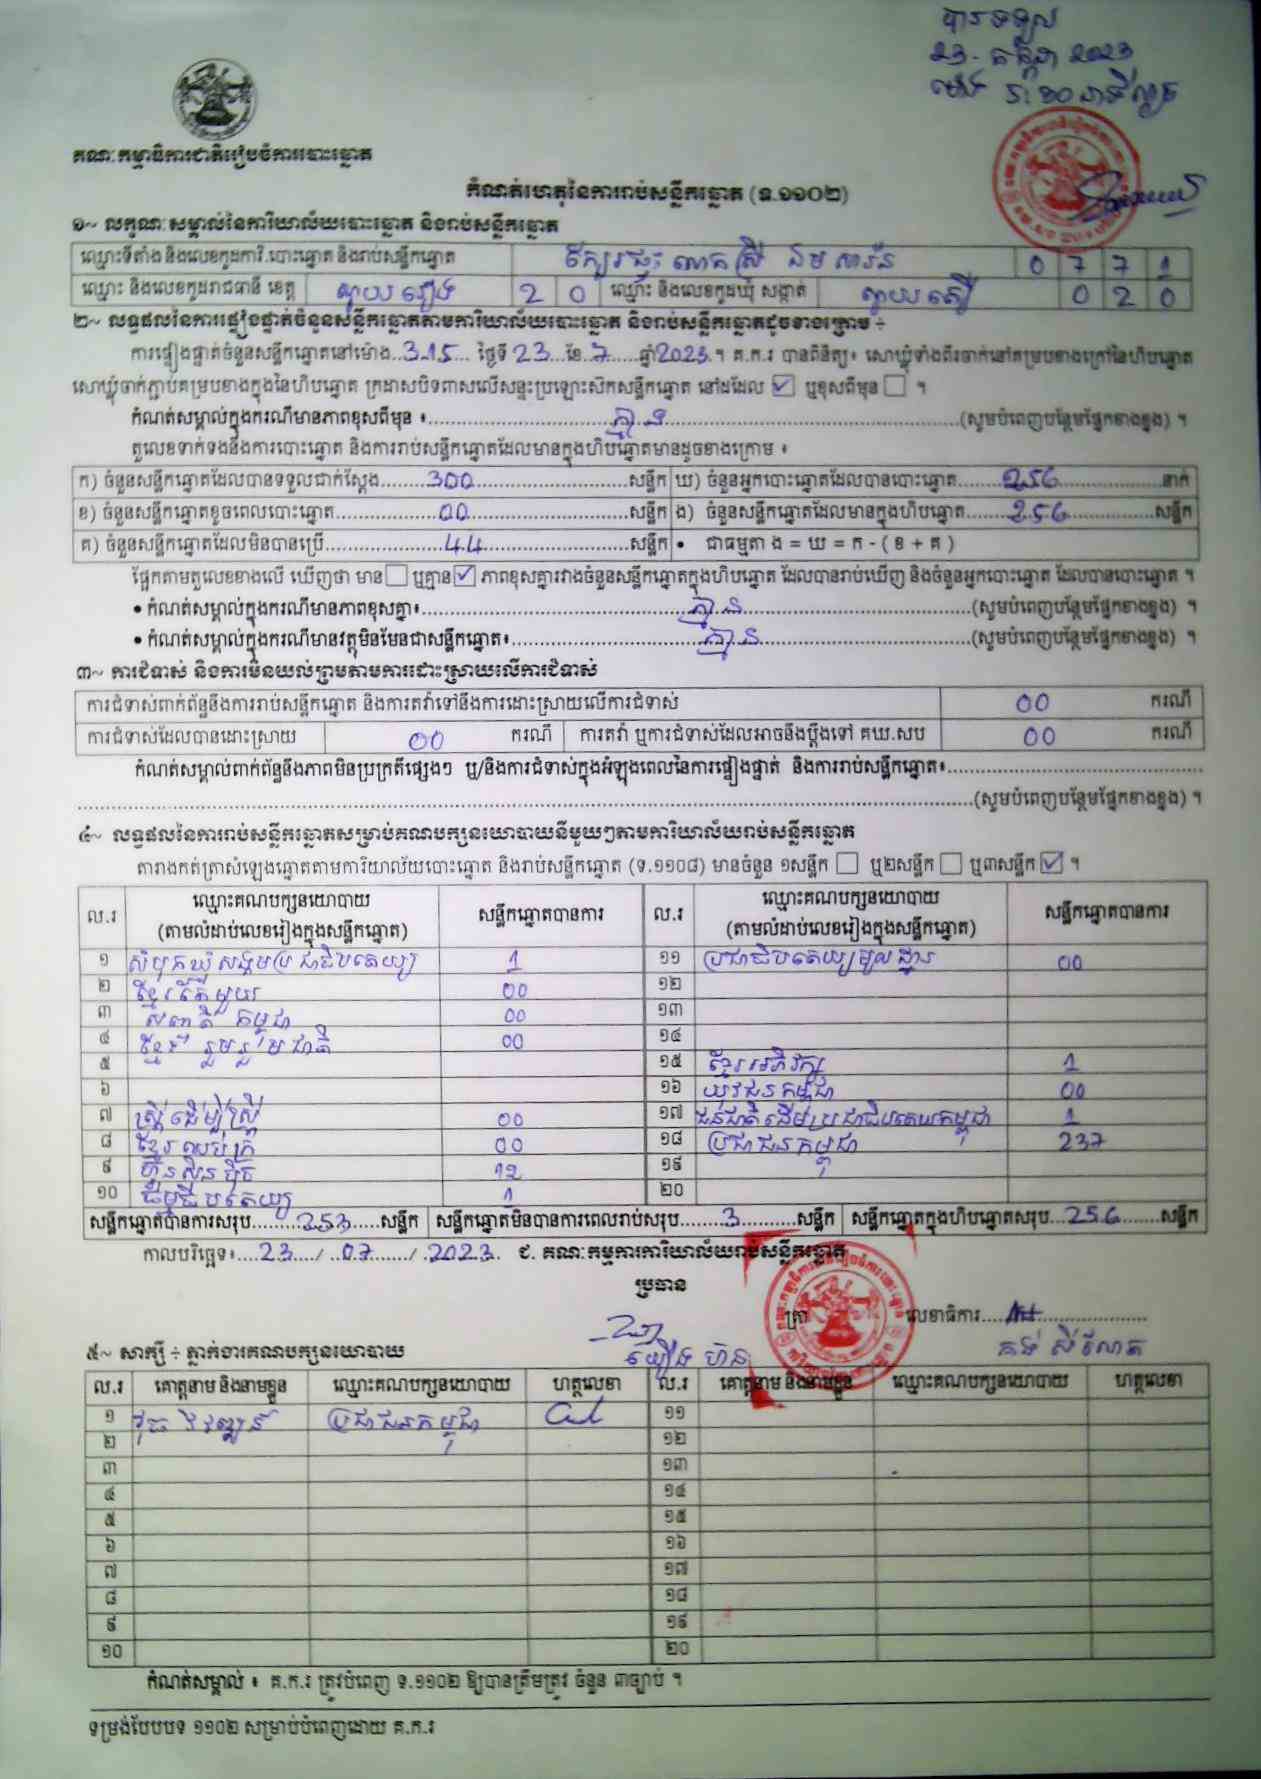 បានទទួល
23 - កក្កដា 2023
ម៉ោង 5:30 នាទីល្ងាច
គណៈកម្មាធិការជាតិរៀបចំការបោះឆ្នោត
កំណត់ហេតុនៃការរាប់សន្លឹកឆ្នោត (ទ.១១០២)
១~ លក្ខណៈសម្គាល់នៃការិយាល័យបោះឆ្នោត និងរាប់សន្លឹកឆ្នោត
ឈ្មោះទីតាំង និងលេខកូដការិ.បោះឆ្នោត និងរាប់សន្លឹកឆ្នោត ក្បែរផ្ទះ លោកស្រី ឯម សាវ៉ន 0 7 7 1
ឈ្មោះ និងលេខកូដរាជធានី ខេត្ត ស្វាយរៀង 2 0 ឈ្មោះ និងលេខកូដឃុំ សង្កាត់ ស្វាយតឿ 0 2 0
២~ លទ្ធផលនៃការផ្ទៀងផ្ទាត់ចំនួនសន្លឹកឆ្នោតតាមការិយាល័យបោះឆ្នោត និងរាប់សន្លឹកឆ្នោតដូចខាងក្រោម ÷
ការផ្ទៀងផ្ទាត់ចំនួនសន្លឹកឆ្នោតនៅម៉ោង..3.15... ថ្ងៃទី 23 ខែ.7.....ឆ្នាំ2023.។ គ.ក.រ បានពិនិត្យ៖ សោឃ្លុំទាំងពីរចាក់នៅគម្របខាងក្រៅនៃហិបឆ្នោត
សោឃ្លុំចាក់ភ្ជាប់គម្របខាងក្នុងនៃហិបឆ្នោត ក្រដាសបិទពាសលើសន្ទះប្រឡោះស៊កសន្លឹកឆ្នោត នៅដដែល ☑ ឬខុសពីមុន ☐ ។
កំណត់សម្គាល់ក្នុងករណីមានភាពខុសពីមុន ៖........គ្មាន........(សូមបំពេញបន្ថែមផ្នែកខាងខ្នង) ។
តួលេខទាក់ទងនឹងការបោះឆ្នោត និងការរាប់សន្លឹកឆ្នោតដែលមានក្នុងហិបឆ្នោតមានដូចខាងក្រោម ៖
ក) ចំនួនសន្លឹកឆ្នោតដែលបានទទួលជាក់ស្តែង........300........សន្លឹក ឃ) ចំនួនអ្នកបោះឆ្នោតដែលបានបោះឆ្នោត........256........នាក់
ខ) ចំនួនសន្លឹកឆ្នោតខូចពេលបោះឆ្នោត........00........សន្លឹក ង) ចំនួនសន្លឹកឆ្នោតដែលមានក្នុងហិបឆ្នោត........256........សន្លឹក
គ) ចំនួនសន្លឹកឆ្នោតដែលមិនបានប្រើ........44........សន្លឹក • ជាធម្មតា ង = ឃ = ក - ( ខ + គ )
ផ្អែកតាមតួលេខខាងលើ ឃើញថា មាន ☐ ឬគ្មាន ☑ ភាពខុសគ្នារវាងចំនួនសន្លឹកឆ្នោតក្នុងហិបឆ្នោត ដែលបានរាប់ឃើញ និងចំនួនអ្នកបោះឆ្នោត ដែលបានបោះឆ្នោត ។
• កំណត់សម្គាល់ក្នុងករណីមានភាពខុសគ្នា៖........គ្មាន........(សូមបំពេញបន្ថែមផ្នែកខាងខ្នង) ។
• កំណត់សម្គាល់ក្នុងករណីមានវត្ថុមិនមែនជាសន្លឹកឆ្នោត៖........គ្មាន........(សូមបំពេញបន្ថែមផ្នែកខាងខ្នង) ។
៣~ ការជំទាស់ និងការមិនយល់ព្រមតាមការដោះស្រាយលើការជំទាស់
ការជំទាស់ពាក់ព័ន្ធនឹងការរាប់សន្លឹកឆ្នោត និងការតវ៉ាទៅនឹងការដោះស្រាយលើការជំទាស់ 00 ករណី
ការជំទាស់ដែលបានដោះស្រាយ 00 ករណី ការតវ៉ា ឬការជំទាស់ដែលអាចនឹងប្តឹងទៅ គឃ.សប 00 ករណី
កំណត់សម្គាល់ពាក់ព័ន្ធនឹងភាពមិនប្រក្រតីផ្សេងៗ ឬ/និងការជំទាស់ក្នុងអំឡុងពេលនៃការផ្ទៀងផ្ទាត់ និងការរាប់សន្លឹកឆ្នោត៖........
........(សូមបំពេញបន្ថែមផ្នែកខាងខ្នង) ។
៤~ លទ្ធផលនៃការរាប់សន្លឹកឆ្នោតសម្រាប់គណបក្សនយោបាយនីមួយៗតាមការិយាល័យរាប់សន្លឹកឆ្នោត
តារាងកត់ត្រាសំឡេងឆ្នោតតាមការិយាល័យបោះឆ្នោត និងរាប់សន្លឹកឆ្នោត (ទ.១១០៨) មានចំនួន ១សន្លឹក ☐ ឬ២សន្លឹក ☐ ឬ៣សន្លឹក ☑ ។
ល.រ ឈ្មោះគណបក្សនយោបាយ (តាមលំដាប់លេខរៀងក្នុងសន្លឹកឆ្នោត) សន្លឹកឆ្នោតបានការ ល.រ ឈ្មោះគណបក្សនយោបាយ (តាមលំដាប់លេខរៀងក្នុងសន្លឹកឆ្នោត) សន្លឹកឆ្នោតបានការ
១ សំបុកឃ្មុំសង្គមប្រជាធិបតេយ្យ 1 ១១ ប្រជាធិបតេយ្យមូលដ្ឋាន 00
២ ខ្មែរតែមួយ 00 ១២
៣ សញ្ជាតិ កម្ពុជា 00 ១៣
៤ ខ្មែររួបរួមជាតិ 00 ១៤
៥ ១៥ ខ្មែរអភិវឌ្ឍ 1
៦ ១៦ យុវជនកម្ពុជា 00
៧ ស្ត្រីដើម្បីស្ត្រី 00 ១៧ ជនជាតិដើមប្រជាធិបតេយ្យកម្ពុជា 1
៨ ខ្មែរឈប់ក្រ 00 ១៨ ប្រជាជនកម្ពុជា 237
៩ ហ៊្វុនស៊ិនប៉ិច 12 ១៩
១០ ធម្មាធិបតេយ្យ 1 ២០
សន្លឹកឆ្នោតបានការសរុប........253.....សន្លឹក សន្លឹកឆ្នោតមិនបានការពេលរាប់សរុប........3........សន្លឹក សន្លឹកឆ្នោតក្នុងហិបឆ្នោតសរុប...256......សន្លឹក
កាលបរិច្ឆេទ៖....23..../...07....../.2023. ជ. គណៈកម្មការការិយាល័យរាប់សន្លឹកឆ្នោត
ប្រធាន
ត្រា លេខាធិការ........
៥~ សាក្សី ÷ ភ្នាក់ងារគណបក្សនយោបាយ
ល.រ គោត្តនាម និងនាមខ្លួន ឈ្មោះគណបក្សនយោបាយ ហត្ថលេខា ល.រ គោត្តនាម និងនាមខ្លួន ឈ្មោះគណបក្សនយោបាយ ហត្ថលេខា
១ ប្រជាជនកម្ពុជា ១១
២ ១២
៣ ១៣
៤ ១៤
៥ ១៥
៦ ១៦
៧ ១៧
៨ ១៨
៩ ១៩
១០ ២០
កំណត់សម្គាល់ ៖ គ.ក.រ ត្រូវបំពេញ ទ.១១០២ ឱ្យបានត្រឹមត្រូវ ចំនួន ៣ច្បាប់ ។
ទម្រង់បែបបទ ១១០២ សម្រាប់បំពេញដោយ គ.ក.រ